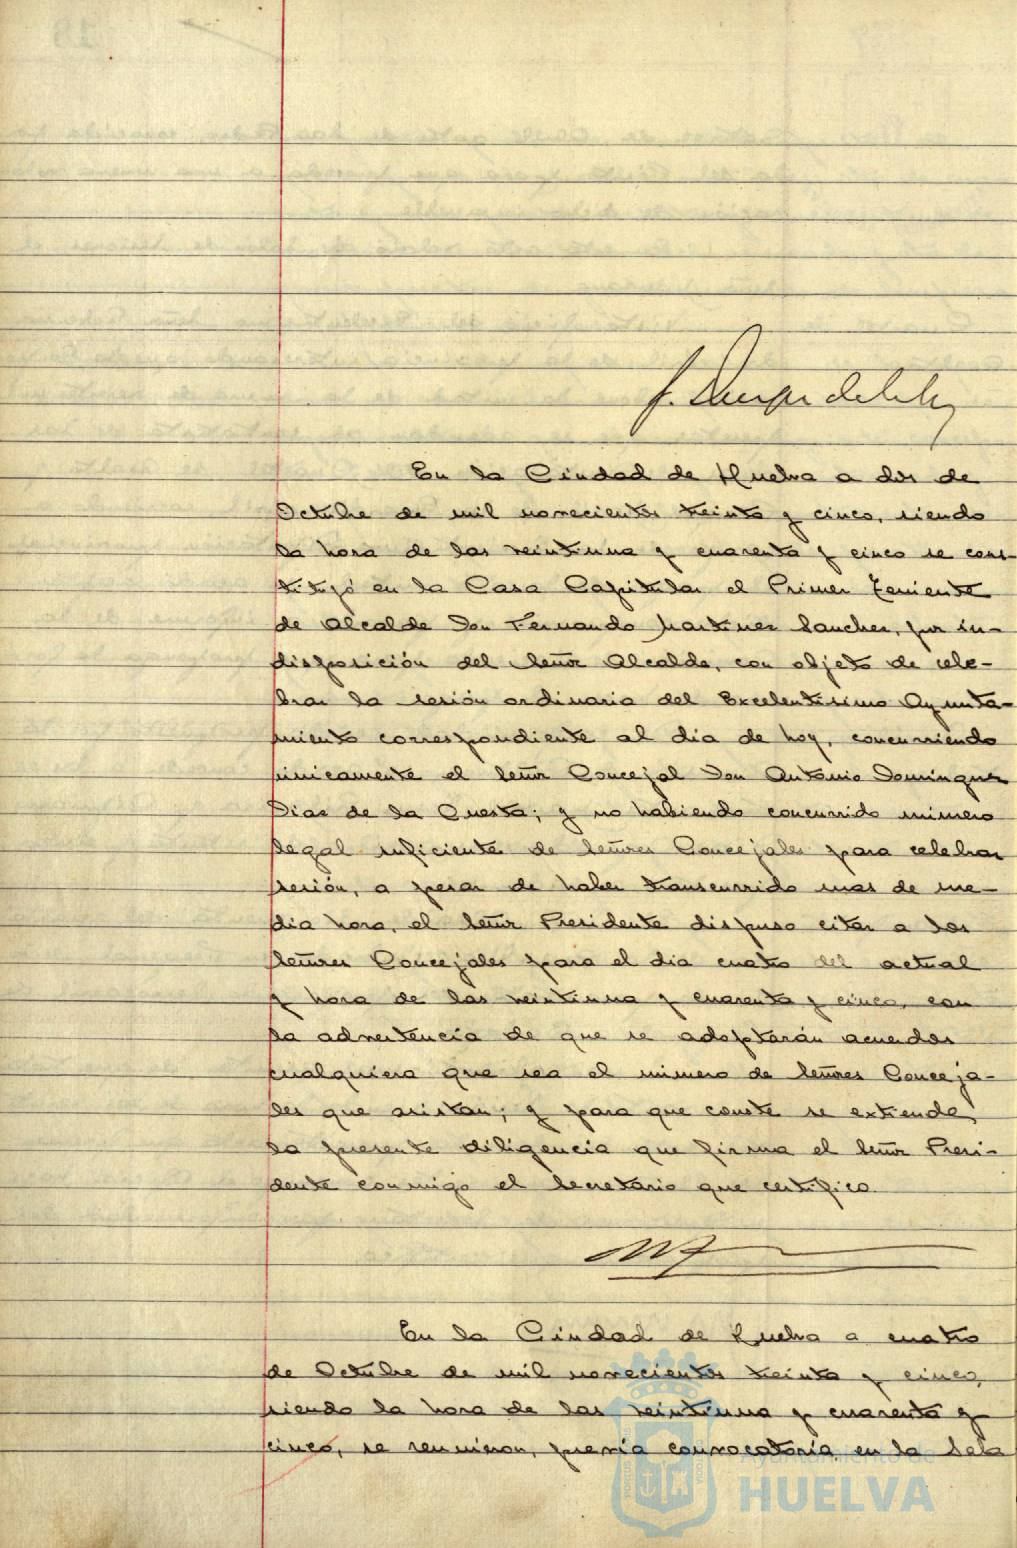 En la Ciudad de Huelva a dos de
Octubre de mil novecientos treinta y cinco, siendo
la hora de las veintiuna y cuarenta y cinco se cons-
tituyó en la Casa Capitular el Primer Teniente
de Alcalde Don Fernando Martinez Sanchez, por in-
disposición del Señor Alcalde, con objeto de cele-
brar la sesión ordinaria del Excelentisimo Ayunta-
miento correspondiente al dia de hoy, concurriendo
unicamente el Señor Concejal Don Antonio Dominguez
Diaz de la Cuesta; y no habiendo concurrido número
legal suficiente de Señores Concejales para celebrar
sesión, a pesar de haber transcurrido mas de me-
dia hora, el Señor Presidente dispuso citar a los
Señores Concejales para el dia cuatro del actual
y hora de las veintiuna y cuarenta y cinco, con
la advertencia de que se adoptarán acuerdos
cualquiera que sea el número de Señores Conceja-
les que asistan; y para que conste se extiende
la presente diligencia que firma el Señor Presi-
dente conmigo el Secretario que certifico.
En la Ciudad de Huelva a cuatro
de Octubre de mil novecientos treinta y cinco,
siendo la hora de las veintiuna y cuarenta y
cinco, se reunieron, previa convocatoria en la Sala
Ayuntamiento de
HUELVA